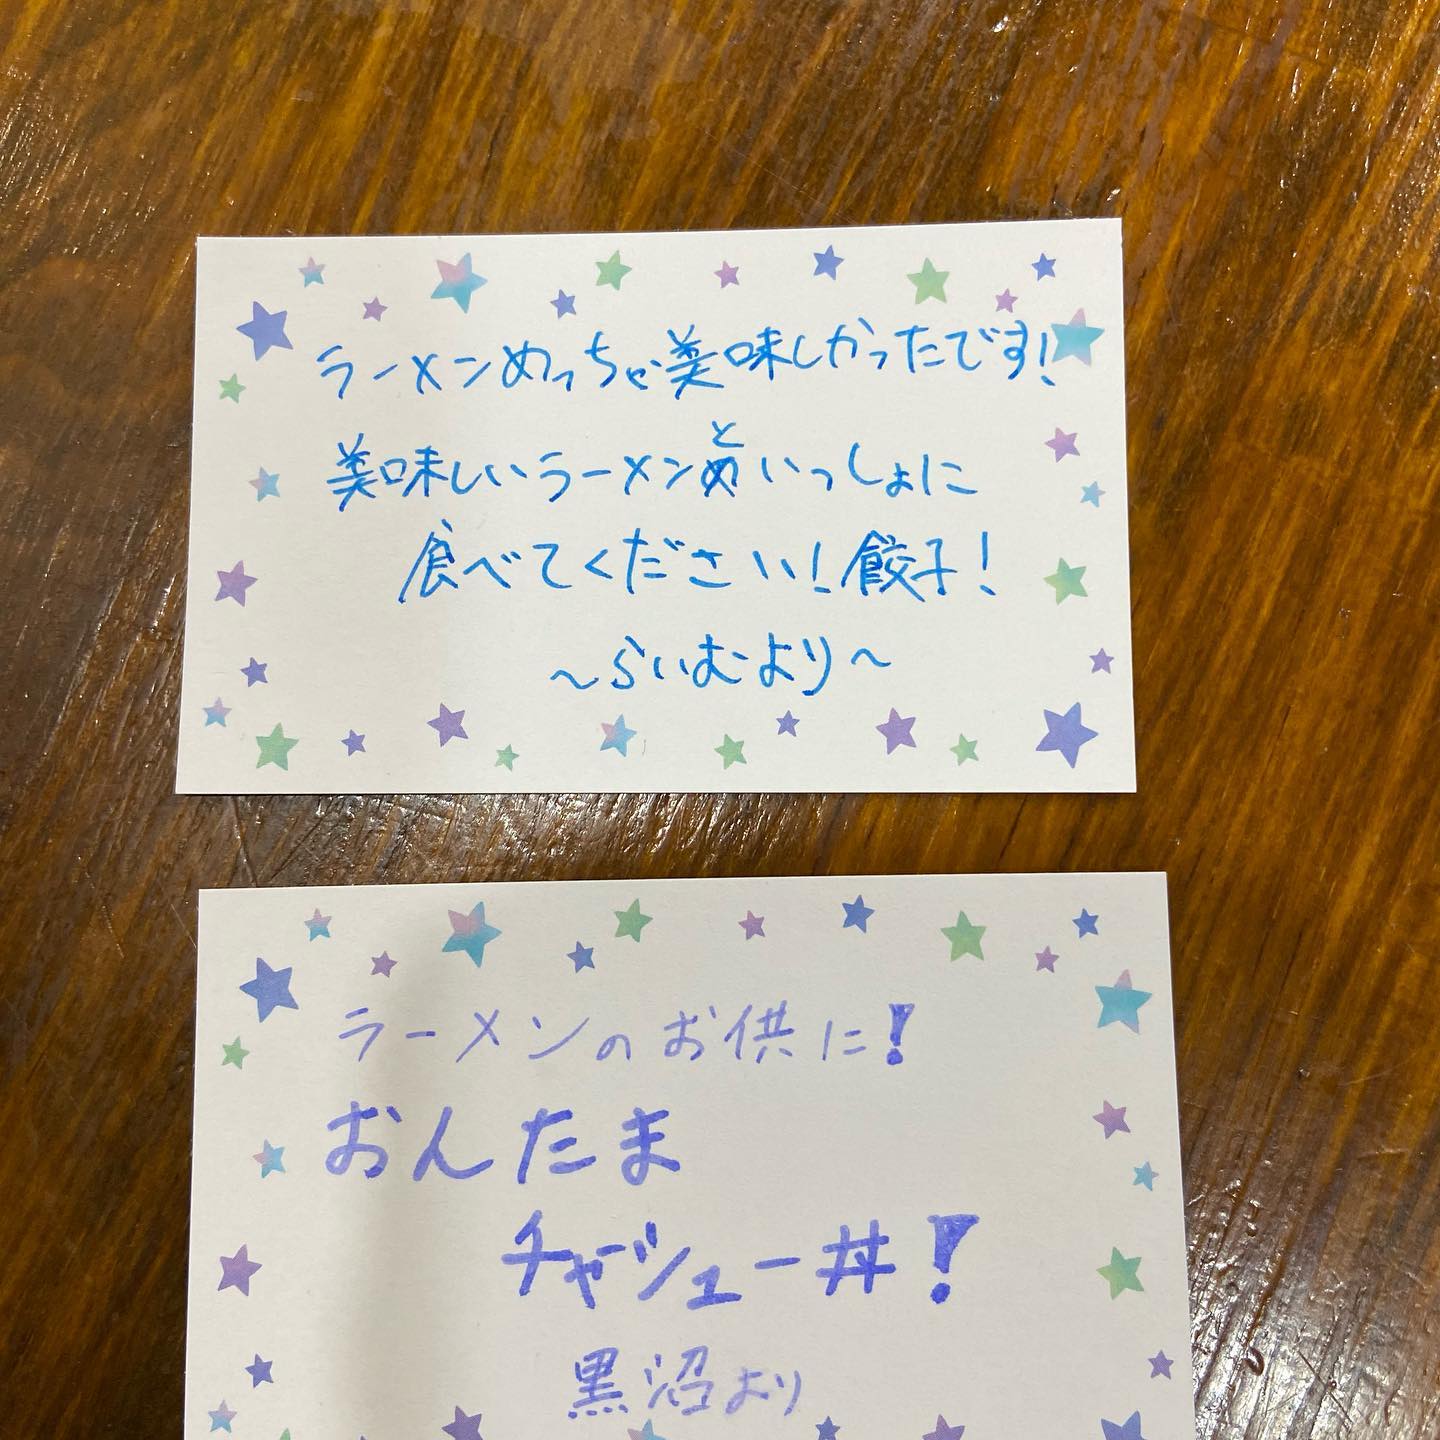 ラーメンめっちゃ美味しかったです!
美味しいラーメンといっしょに
食べてください!餃子!
～らいむより～
ラーメンのお供に!
おんたま
チャーシュー丼!
黒沼より